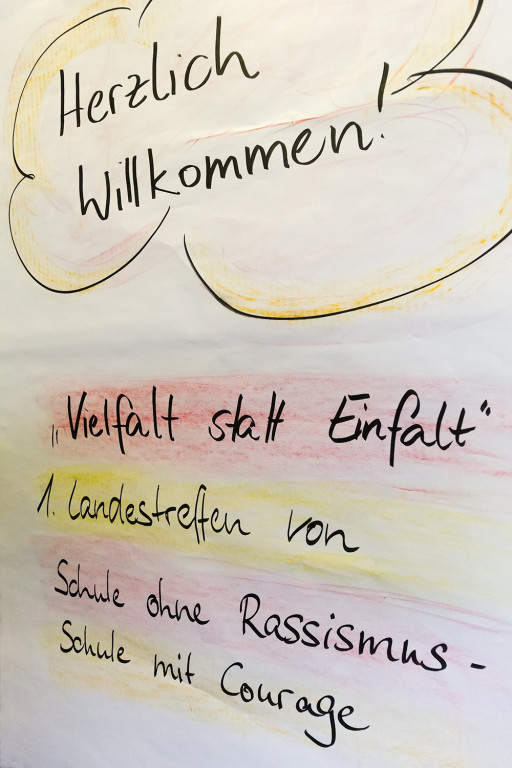 Herzlich
Willkommen!
„Vielfalt statt Einfalt“
1. Landestreffen von
Schule ohne Rassismus -
Schule mit Courage